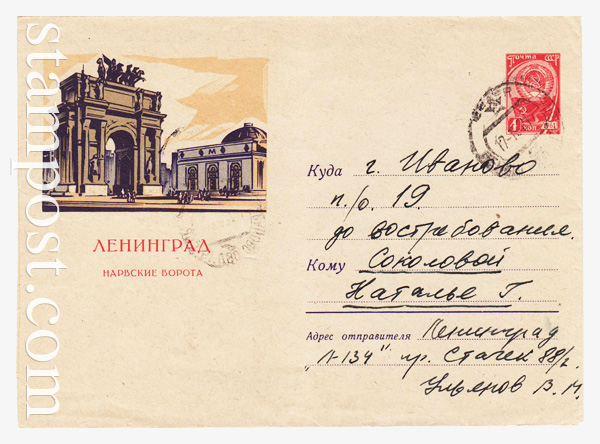 stampost.com
ПОЧТА СССР
4 КОП
М
ЛЕНИНГРАД
НАРВСКИЕ ВОРОТА
Куда г. Иваново
п./о. 19.
до востребования.
Кому Соколовой
Наталье Г.
Адрес отправителя Ленинград
"Л-134" пр. Стачек 88/2
Ульянов В. М.